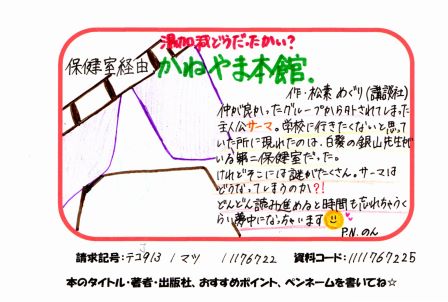 湯加減どうだったかい?
保健室経由
かねやま本館。
作・松素 めぐり(講談社)
仲が良かったグループから外されてしまった
主人公サーマ。学校に行きたくないと思って
いた所に現れたのは、白髪の銀山先生が
いる第二保健室だった。
けれどそこには謎がたくさん。サーマは
どうなってしまうのか?!
どんどん読み進めると時間も忘れちゃうく
らい夢中になっちゃいます
P.N.のん
請求記号:テコ913 / マツ / 11176722 資料コード:1111767225
本のタイトル・著者・出版社、おすすめポイント、ペンネームを書いてね☆